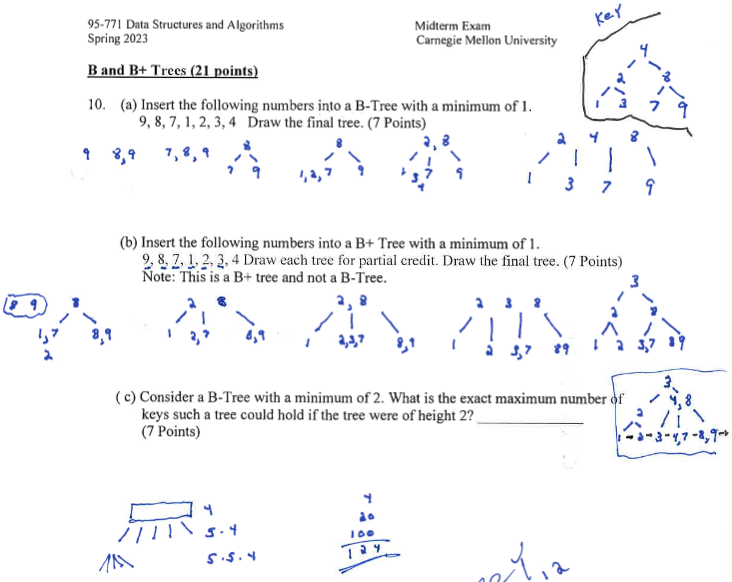 Key
95-771 Data Structures and Algorithms Midterm Exam
Spring 2023 Carnegie Mellon University
4
B and B+ Trees (21 points)
2 8
1 3 7 9
10. (a) Insert the following numbers into a B-Tree with a minimum of 1.
9, 8, 7, 1, 2, 3, 4 Draw the final tree. (7 Points)
9 8,9 7,8,9 8 8 2,8 2 4 8
7 9 1,2,7 9 1 3,7 9 1 3 7 9
4
(b) Insert the following numbers into a B+ Tree with a minimum of 1.
9, 8, 7, 1, 2, 3, 4 Draw each tree for partial credit. Draw the final tree. (7 Points)
Note: This is a B+ tree and not a B-Tree.
3
8 9 8 2 8 2,8 2 3 8 2 8
1,7 8,9 1 2,7 8,9 1 2,3,7 8,9 1 2 3,7 89 1 2 3,7 89
2
(c) Consider a B-Tree with a minimum of 2. What is the exact maximum number of
keys such a tree could hold if the tree were of height 2?
(7 Points)
3
2 4,8
1 2 3 4,7 8,9
4
5.4
5.5.4
4
20
100
124